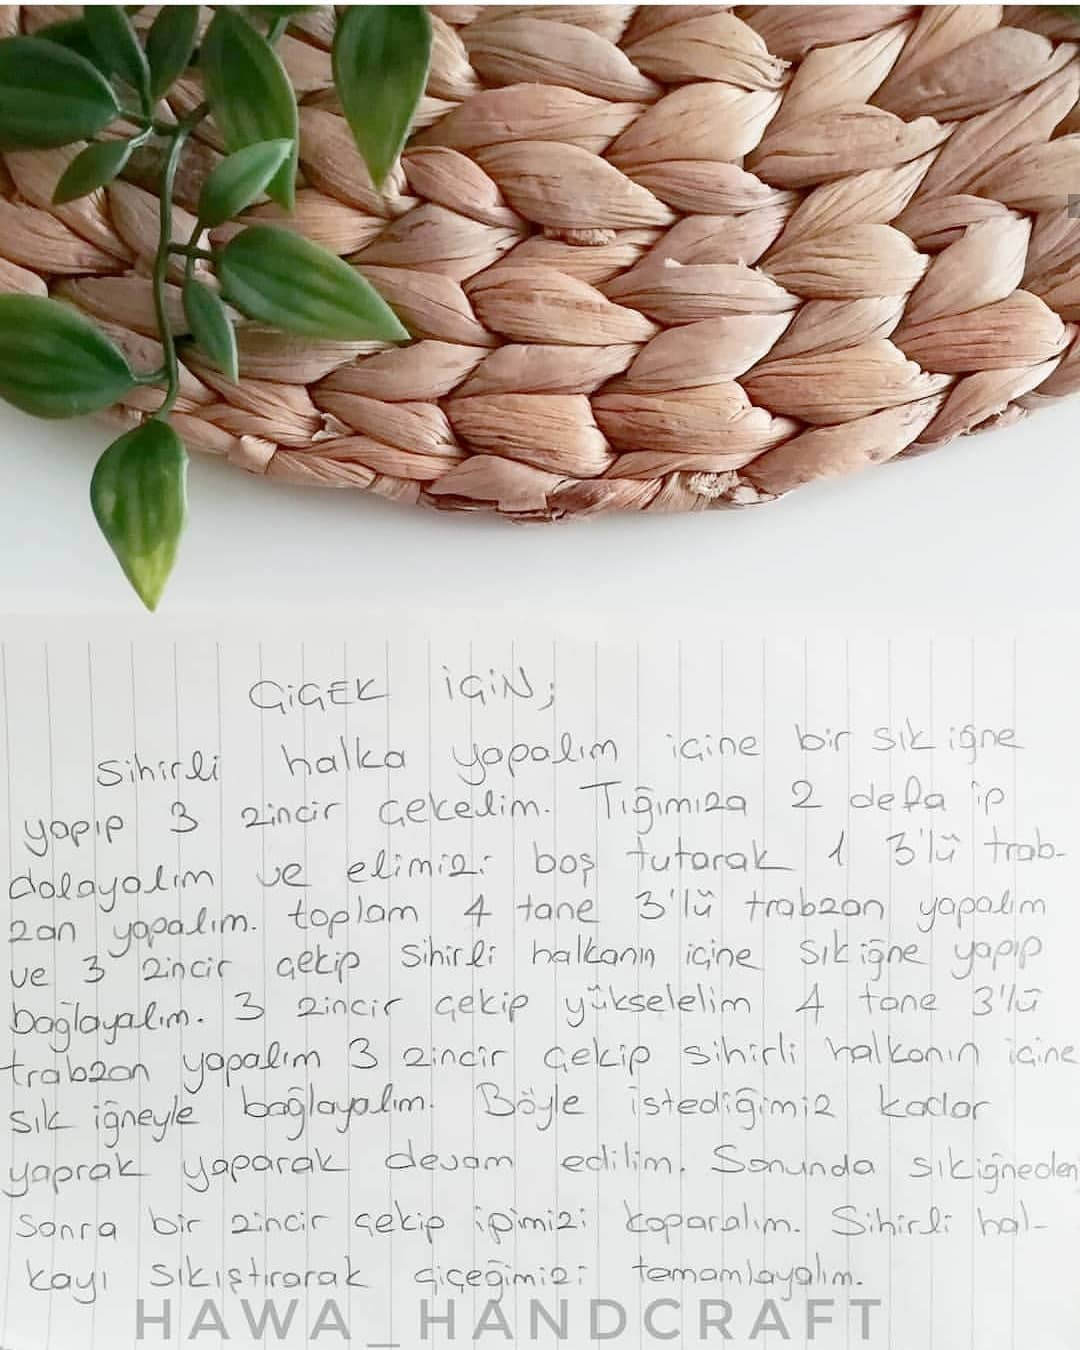 ÇİÇEK İÇİN;
Sihirli halka yapalım içine bir sık iğne
yapıp 3 zincir çekelim. Tığımıza 2 defa ip
dolayalım ve elimizi boş tutarak 1 3'lü trab-
zan yapalım. toplam 4 tane 3'lü trabzan yapalım
ve 3 zincir çekip sihirli halkanın içine sık iğne yapıp
bağlayalım. 3 zincir çekip yükselelim 4 tane 3'lü
trabzan yapalım 3 zincir çekip sihirli halkanın içine
sık iğneyle bağlayalım. Böyle istediğimiz kadar
yaprak yaparak devam edilim. Sonunda sık iğneden
sonra bir zincir çekip ipimizi koparalım. Sihirli hal-
kayı sıkıştırarak çiçeğimizi tamamlayalım.
HAWA_HANDCRAFT